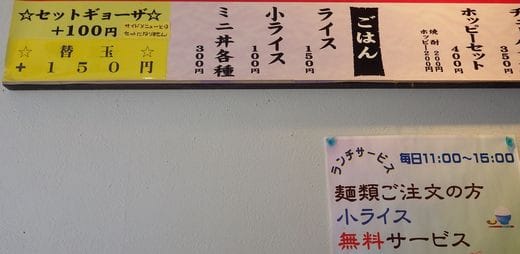 ☆セットギョーザ☆
+100円
☆替玉☆
+150円
ミニ丼各種
300円
小ライス
100円
ライス
150円
ごはん
焼酎 200円
ホッピー 200円
ホッピーセット
400円
ランチサービス
毎日11:00～15:00
麺類ご注文の方
小ライス
無料サービス